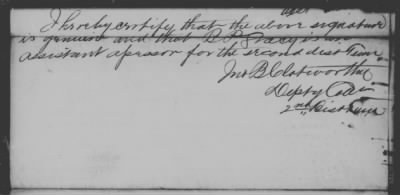 I hereby certify that the above signature
is genuine and that B P is an
assistant assessor for the second dist Tenn
Jno B Clotworthy
Depty Coll
2nd Dist Tenn